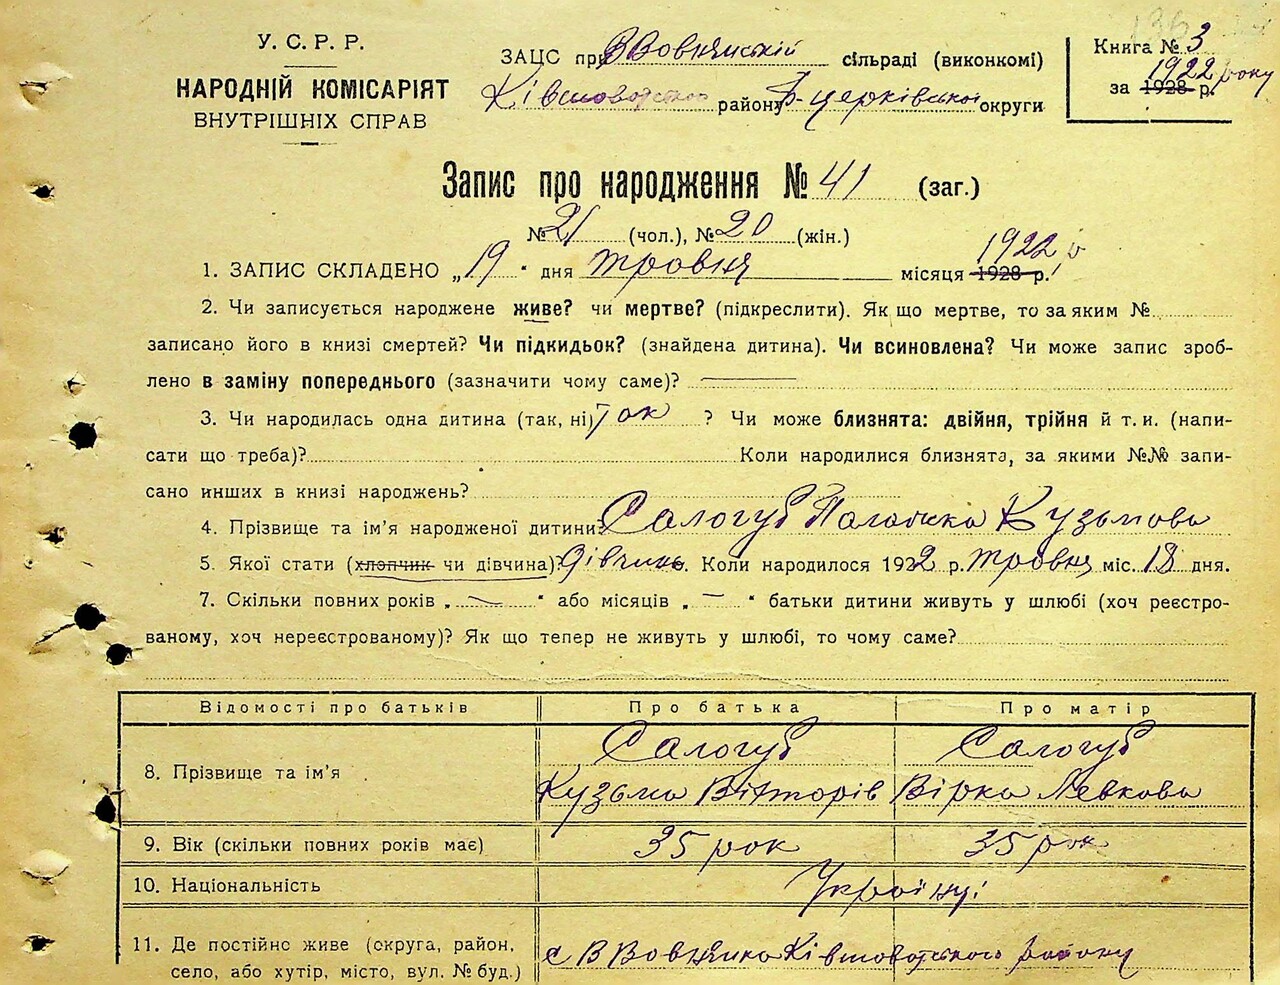 У. С. Р. Р.
НАРОДНІЙ КОМІСАРІЯТ
ВНУТРІШНІХ СПРАВ
ЗАЦС при В Вовнянській сільраді (виконкомі)
Ківшоватського району Б-церківської округи
Книга № 3
1922 року
за 1928 р.
Запис про народження № 41 (заг.)
№ 21 (чол.), № 20 (жін.)
1922 р
1. ЗАПИС СКЛАДЕНО „19" дня травня місяця 1928 р.
2. Чи записується народжене живе? чи мертве? (підкреслити). Як що мертве, то за яким №
записано його в книзі смертей? Чи підкидьок? (знайдена дитина). Чи всиновлена? Чи може запис зроб-
лено в заміну попереднього (зазначити чому саме)?
3. Чи народилась одна дитина (так, ні) так ? Чи може близнята: двійня, трійня й т. и. (напи-
сати що треба)? Коли народилися близнята, за якими №№ запи-
сано инших в книзі народжень?
4. Прізвище та ім'я народженої дитини: Салогуб Палажка Кузьмова
5. Якої стати (хлопчик чи дівчина)? дівчина. Коли народилося 1922 р. травня міс. 18 дня.
7. Скільки повних років „ " або місяців „ " батьки дитини живуть у шлюбі (хоч реєстро-
ваному, хоч нереєстрованому)? Як що тепер не живуть у шлюбі, то чому саме?
Відомості про батьків Про батька Про матір
8. Прізвище та ім'я Салогуб Салогуб
Кузьма Вікторів Вірка Левкова
9. Вік (скільки повних років має) 35 рок 35 рок
10. Національність Українці
11. Де постійно живе (округа, район,
село, або хутір, місто, вул. № буд.) с В Вовнянка Ківшоватського району